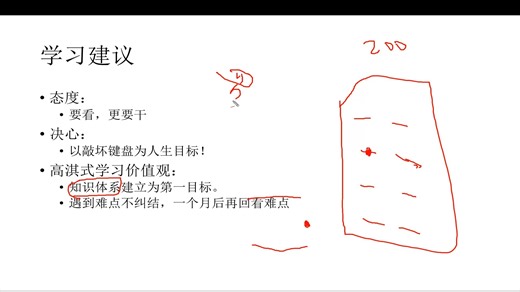 学习建议
200
• 态度：
• 要看，更要干
• 决心：
• 以敲坏键盘为人生目标！
• 高淇式学习价值观：
• 知识体系建立为第一目标。
• 遇到难点不纠结，一个月后再回看难点